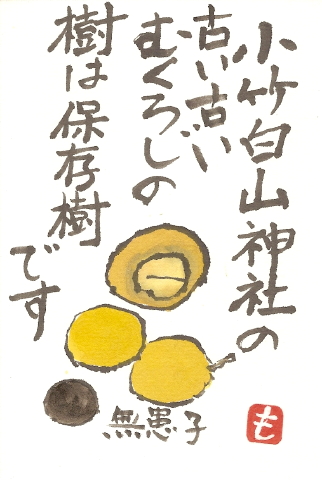 小竹白山神社の
古い古い
むくろじの
樹は保存樹
です
無患子
も